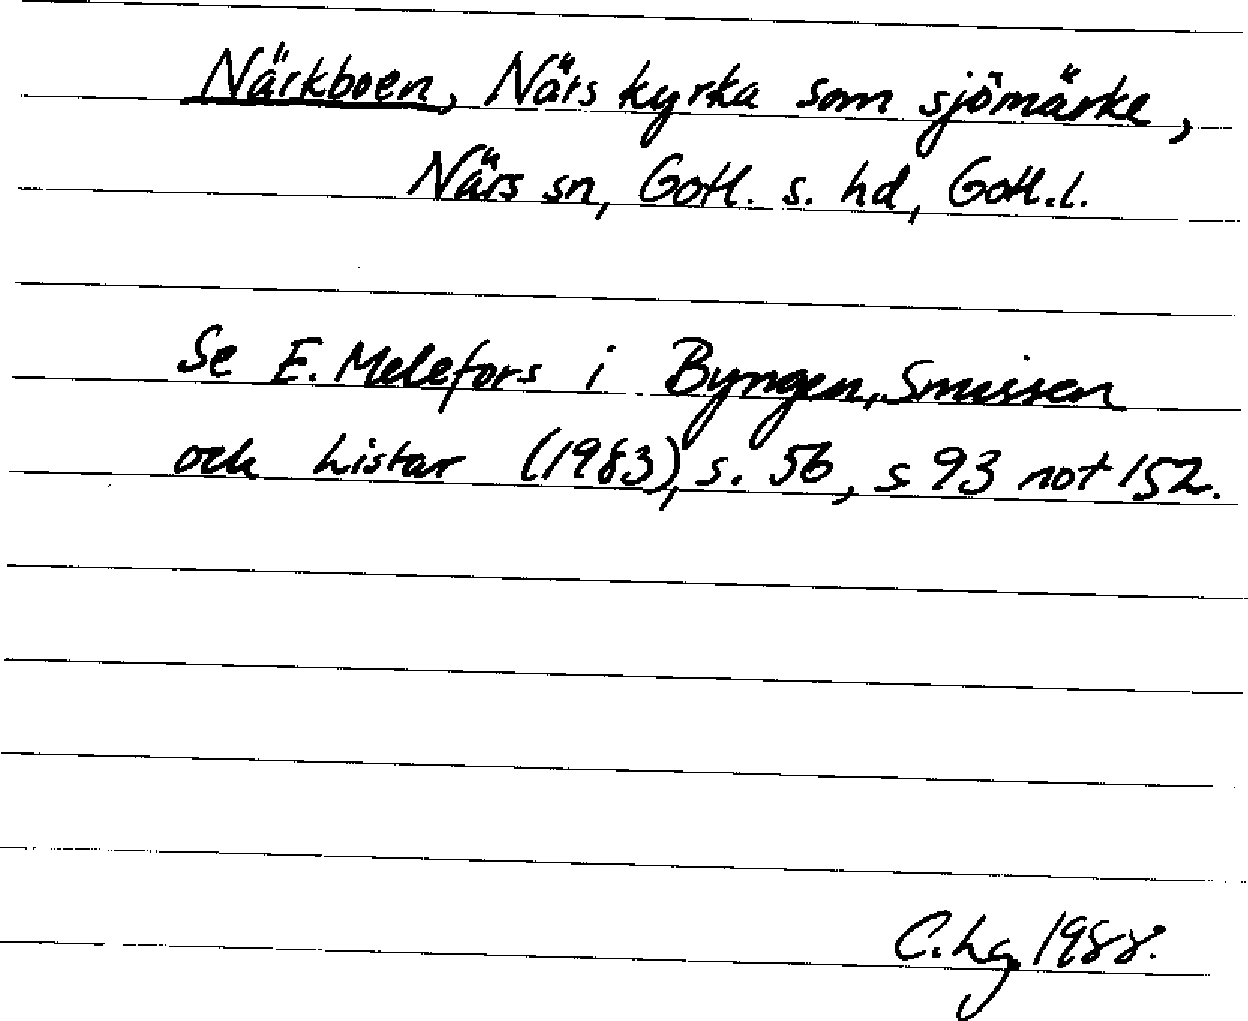 Närkboen, Närs kyrka som sjömärke,
Närs sn, Gotl. s. hd, Gotl.l.
Se E. Melefors i Byngen, Smissen
och Listar (1983), s. 56, s 93 not 152.
C. Lg. 1988.